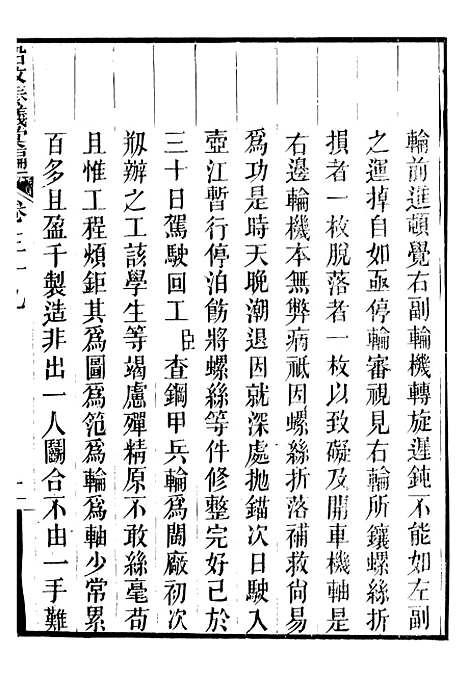 輪前進頓覺右副輪機轉旋遲鈍不能如左副
之運掉自如亟停輪審視見右輪所鑲螺絲折
損者一枚脫落者一枚以致礙及開車機軸是
右邊輪機本無弊病祇因螺絲折落補救尙易
爲功是時天晚潮退因就深處抛錨次日駛入
壺江暫行停泊飭將螺絲等件修整完好已於
三十日駕駛回工臣查鋼甲兵輪爲閩廠初次
剏辦之工該學生等竭慮殫精原不敢絲毫苟
且惟工程煩鉅其爲圖爲范爲輪爲軸少常累
百多且盈千製造非出一人鬭合不由一手難
船政奏議彙編 卷三十九